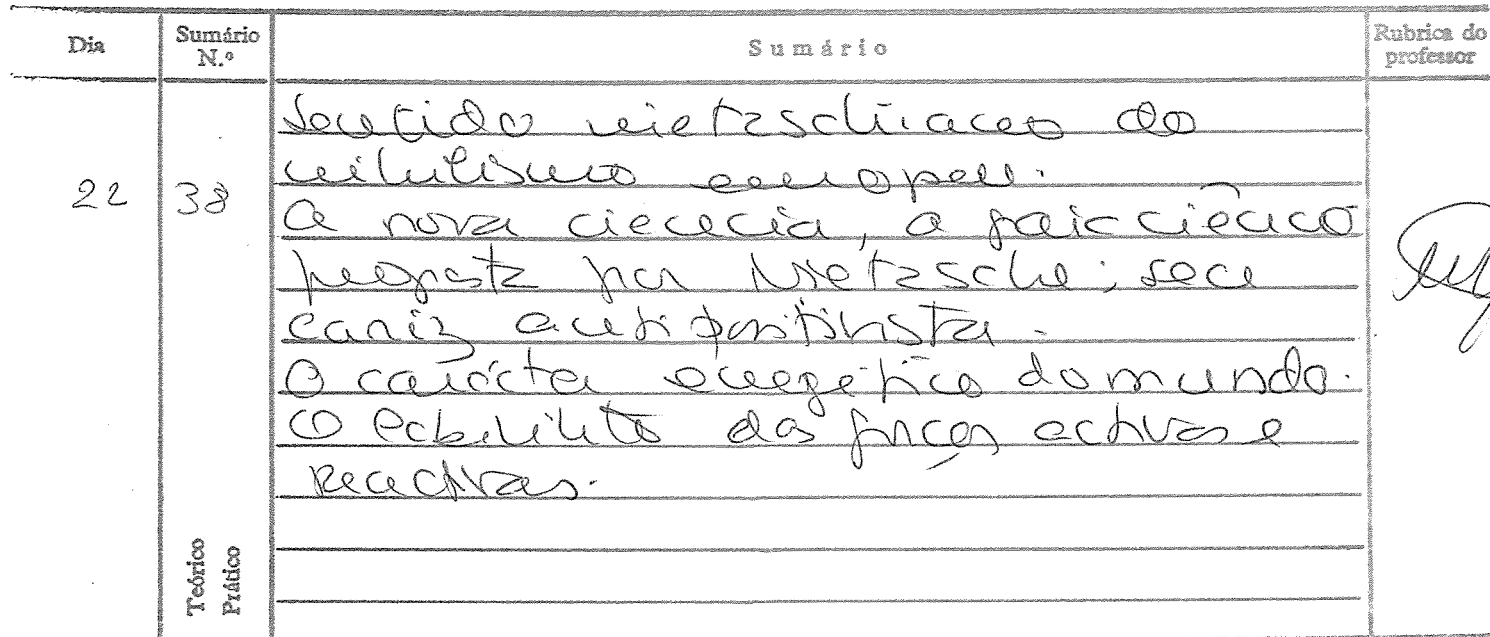 Dia Sumário N.º Sumário Rubrica do professor
Sentido nietzschiano do
niilismo europeu.
22 38
A nova ciência, a
proposta por Nietzsche; seu
cariz antipositivista.
O carácter exegético do mundo.
O das forças activas e
reactivas.
Teórico
Prático